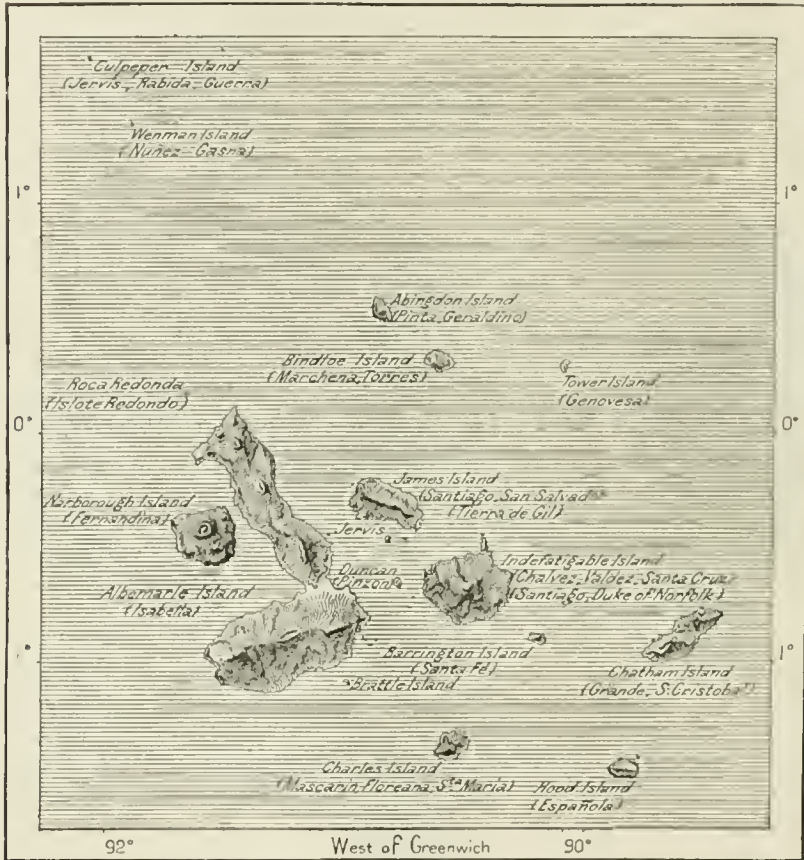 Culpeper Island
(Jervis, Rabida-Guerra)
Wenman Island
(Nuñez-Gasna)
1°
1°
Abingdon Island
(Pinta, Geraldino)
Bindloe Island
(Marchena, Torres)
Tower Island
(Genovesa)
Roca Redonda
(Islote Redondo)
0°
0°
James Island
(Santiago, San Salvad
(Tierra de Gil)
Narborough Island
(Fernandina)
Jervis
Duncan
(Pinzon)
Indefatigable Island
(Chalvez, Valdez, Santa Cruz)
(Santiago, Duke of Norfolk)
Albemarle Island
(Isabella)
Barrington Island
(Santa Fé)
Brattle Island
1°
1°
Chatham Island
(Grande, S. Cristobal)
Charles Island
(Mascarin, Floreana, Sta Maria)
Hood Island
(Española)
92°
West of Greenwich
90°